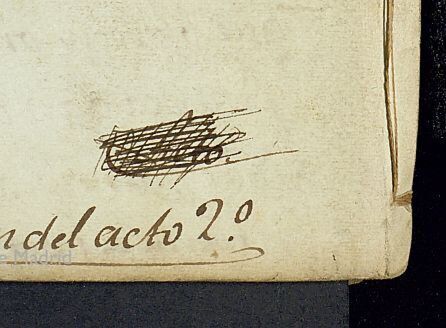 n del acto 2.º
e Madrid